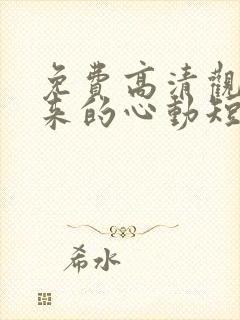 免費高清觀
來的心動短
希水